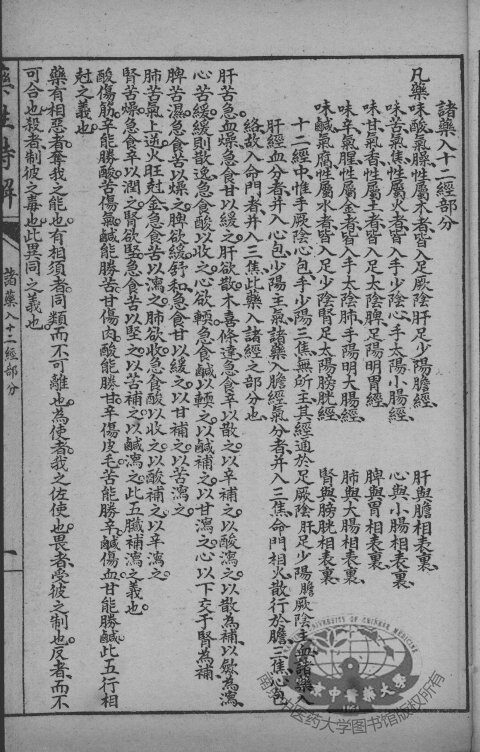 諸藥入十二經部分
凡藥味酸氣臊性屬木者皆入足厥陰肝足少陽膽經 肝與膽相表裏
味苦氣焦性屬火者皆入手少陰心手太陽小腸經 心與小腸相表裏
味甘氣香性屬土者皆入足太陰脾足陽明胃經 脾與胃相表裏
味辛氣腥性屬金者皆入手太陰肺手陽明大腸經 肺與大腸相表裏
味鹹氣腐性屬水者皆入足少陰腎足太陽膀胱經 腎與膀胱相表裏
十二經中惟手厥陰心包手少陽三焦無所主其經通於足厥陰肝足少陽膽厥陰主血諸藥入
肝經血分者并入心包少陽主氣諸藥入膽經氣分者并入三焦命門相火散行於膽三焦心包
絡故入命門者并入三焦此藥入諸經之部分也
肝苦急血燥急食甘以緩之肝欲散木喜條達急食辛以散之以辛補之以酸瀉之以散為補以斂為瀉
心苦緩緩則散逸急食酸以收之心欲耎急食鹹以耎之以鹹補之以甘瀉之心以下交于腎為補
脾苦濕急食苦以燥之脾欲緩舒和急食甘以緩之以甘補之以苦瀉之
肺苦氣上逆火旺尅金急食苦以瀉之肺欲收急食酸以收之以酸補之以辛瀉之
腎苦燥急食辛以潤之腎欲堅急食苦以堅之以苦補之以鹹瀉之此五臟補瀉之義也
酸傷筋辛能勝酸苦傷氣鹹能勝苦甘傷肉酸能勝甘辛傷皮毛苦能勝辛鹹傷血甘能勝鹹此五行相
尅之義也
藥有相惡者奪我之能也有相須者同類而不可離也為使者我之佐使也畏者受彼之制也反者而不
可合也殺者制彼之毒也此異同之義也
藥性詩解
諸藥入十二經部分
一
南京中醫藥大學
南京中医药大学图书馆版权所有
UNIVERSITY OF CHINESE MEDICINE